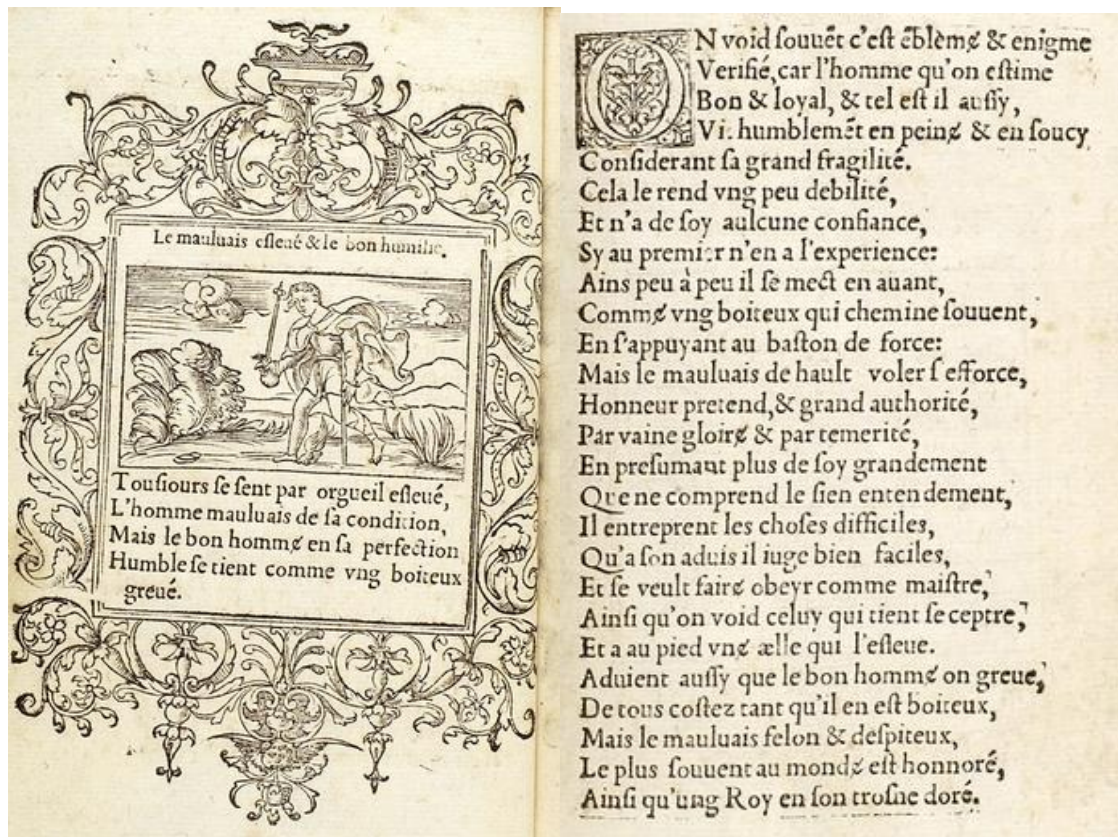 Le mauluais esleué & le bon humilié.
Tousiours se sent par orgueil esleué,
L'homme mauluais de sa condition,
Mais le bon hommɇ en sa perfection
Humble se tient comme vng boiteux
greué.
ON void souuẽt c'est ẽblèmɇ & enigme
Verifié, car l'homme qu'on estime
Bon & loyal, & tel est il aussy,
Vit humblemẽt en peinɇ & en soucy
Considerant sa grand fragilité.
Cela le rend vng peu debilité,
Et n'a de soy aulcune confiance,
Sy au premier n'en a l'experience:
Ains peu à peu il se mect en auant,
Commɇ vng boiteux qui chemine souuent,
En s'appuyant au baston de force:
Mais le mauluais de hault voler s'efforce,
Honneur pretend, & grand authorité,
Par vaine gloirɇ & par temerité,
En presumant plus de soy grandement
Que ne comprend le sien entendement,
Il entreprent les choses difficiles,
Qu'a son aduis il iuge bien faciles,
Et se veult fairɇ obeyr comme maistre,
Ainsi qu'on void celuy qui tient sceptre,
Et a au pied vnɇ ælle qui l'esleue.
Aduient aussy que le bon hommɇ on greue,
De tous costez tant qu'il en est boiteux,
Mais le mauluais felon & despiteux,
Le plus souuent au mondɇ est honnoré,
Ainsi qu'ung Roy en son trosne doré.